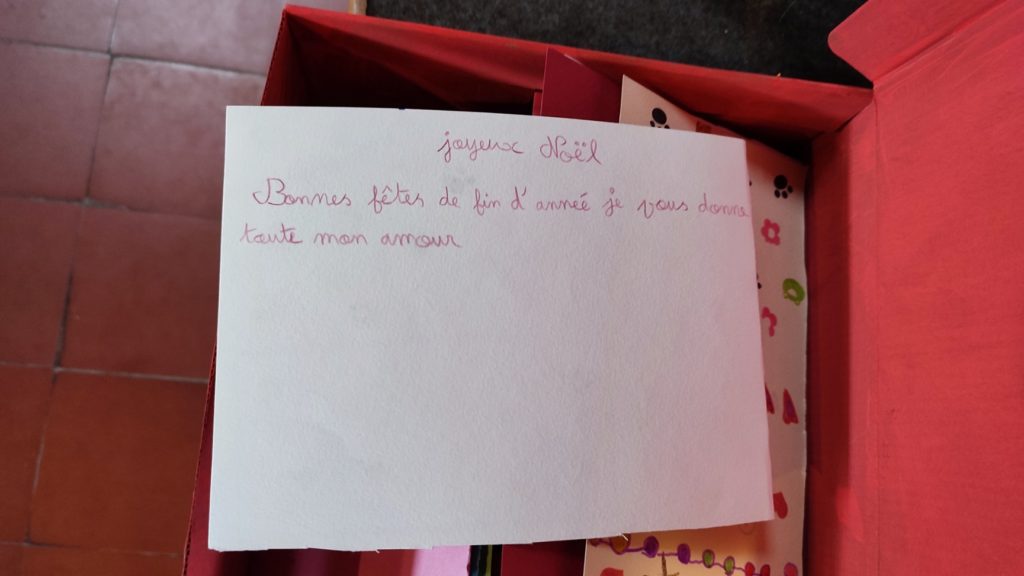 joyeux Noël
Bonnes fêtes de fin d'anneé je vous donne
toute mon amour